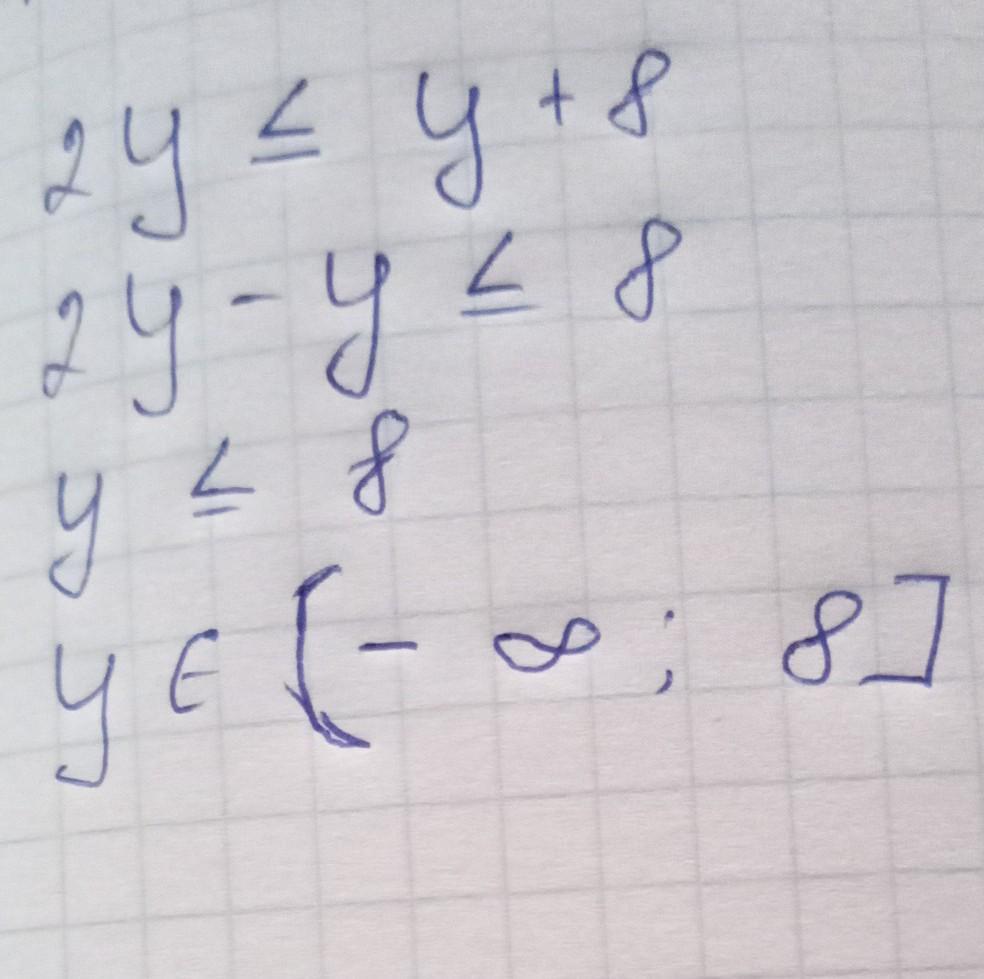 2y ≤ y + 8
2y - y ≤ 8
y ≤ 8
y ∈ (- ∞ ; 8]